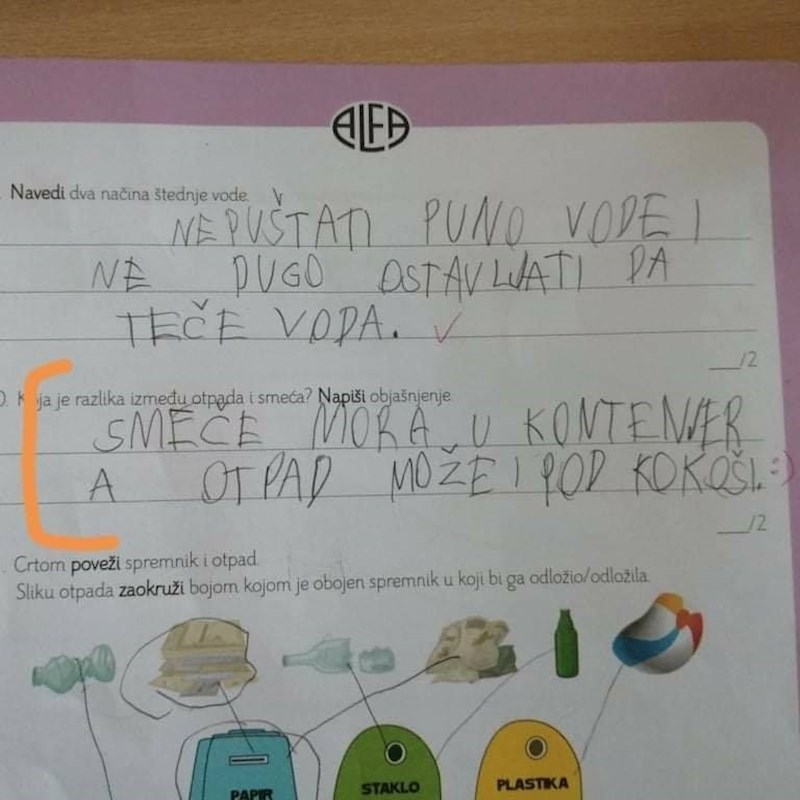 ALFA
Navedi dva načina štednje vode.
NE PUŠTATI PUNO VODE I
NE DUGO OSTAVLJATI DA
TEČE VODA. ✓
__/2
0. Koja je razlika između otpada i smeća? Napiši objašnjenje.
SMEČE MORA U KONTENJER
A OTPAD MOŽE I POD KOKOŠI. :)
__/2
. Crtom poveži spremnik i otpad.
Sliku otpada zaokruži bojom kojom je obojen spremnik u koji bi ga odložio/odložila.
PAPIR STAKLO PLASTIKA